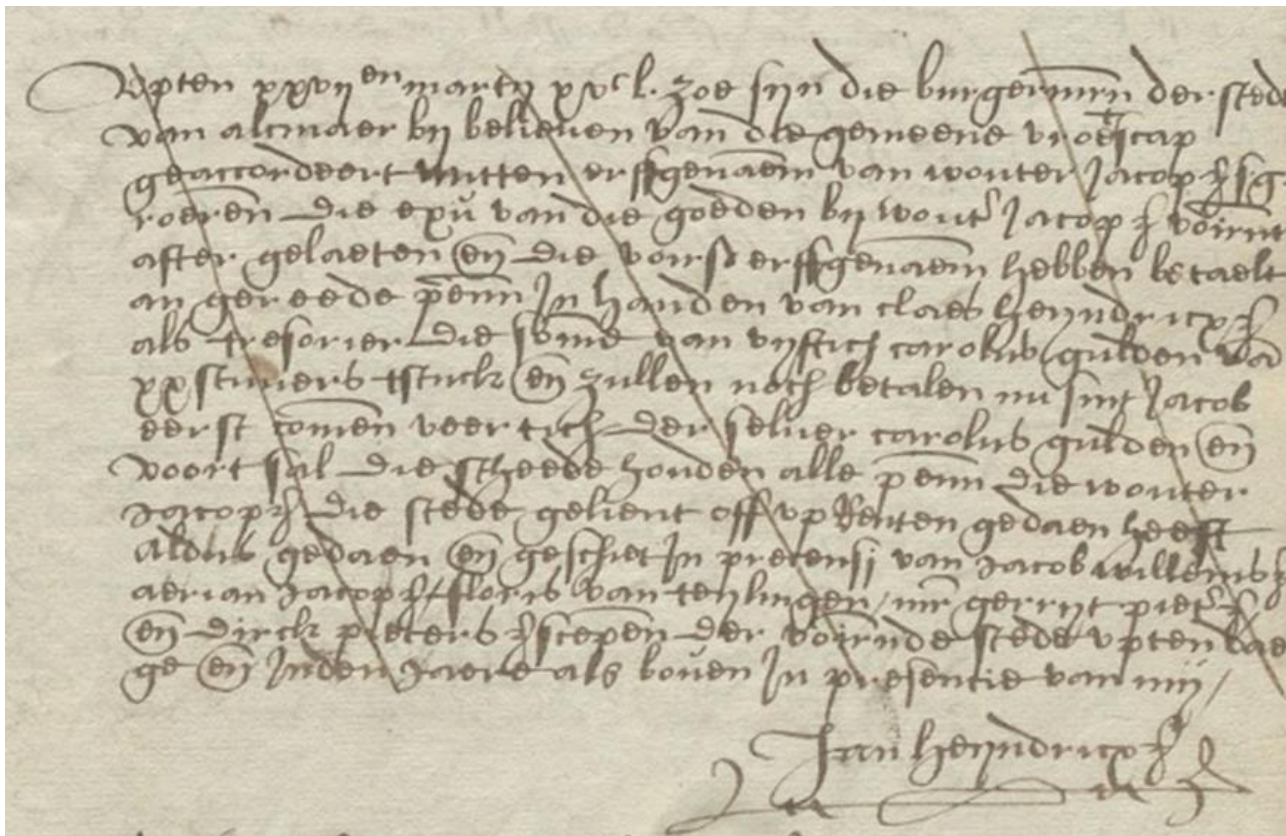 Upten xxvij en martij xvc l. zoe sijn die burgermrn der stede
van alcmaer bij believen van die gemeene vroetscap
geaccordeert mitten erffgenaem van wouter Jacop z
roeren die exu van die goeden bij wout Jacop z voirnt
after gelaeten en die voirs erffgenaem hebben betaelt
an gereede penn In handen van claes heyndricx z
als tresorier die som van vijftich carolus gulden van
xx stuvers tstuck en zullen noch betalen nu sint Jacob
eerst comen veertich der selver carolus gulden en
voort sal die stheede houden alle penn die wouter
Jacop z die stede gelient off up Renten gedaen heeft
aldus gedaen en geschiet In pretensi van Jacob willems z
aerian Jacop z floris van teylingen / mr gerrijt piet z
en dirck pieters z scepen der voirnde stede upten dae
ge en Inden Jaere als boven In presentie van mij /
Jan heyndricx z